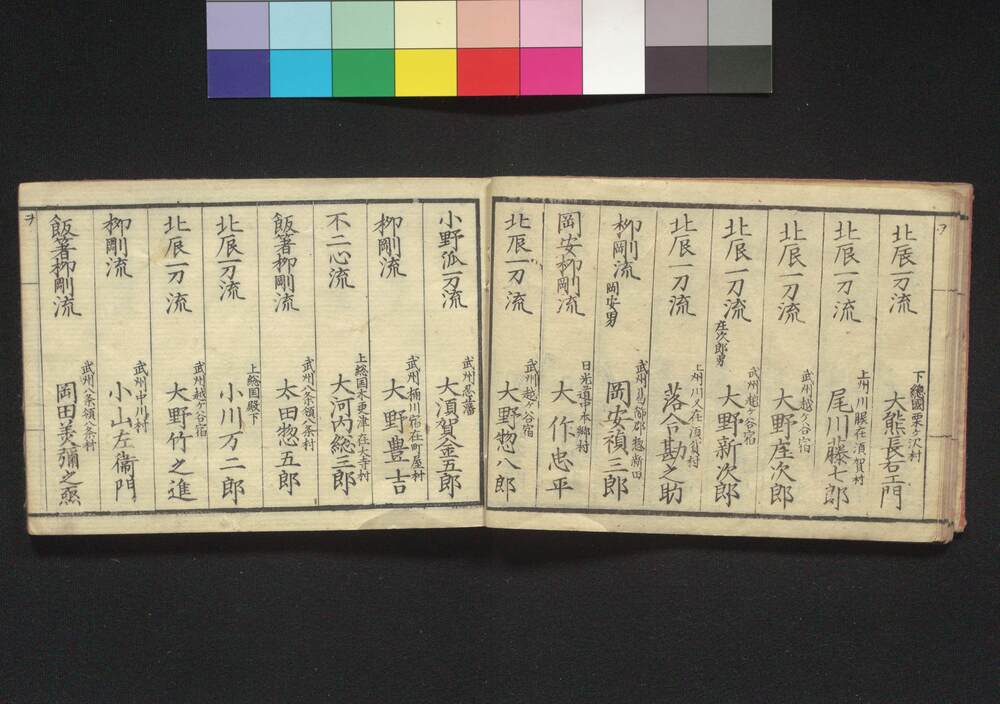 ヲ
北辰一刀流
下總國栗ケ沢村
大熊長右エ門
北辰一刀流
上州川俣在須賀村
尾川藤七郎
北辰一刀流
武州越ケ谷宿
大野庄次郎
北辰一刀流
庄次郎男
武州越ケ谷宿
大野新次郎
北辰一刀流
上州川又在須賀村
落合勘之助
柳剛流
岡安男
武州葛飾郡惣新田
岡安禎三郎
岡安柳剛流
日光道中水郷村
大作忠平
北辰一刀流
武州越ケ谷宿
大野惣八郎
小野派一刀流
武州忍藩
大須賀金五郎
柳剛流
武州桶川宿在町屋村
大野豊吉
不二心流
上総国木更津在大寺村
大河内総三郎
飯箸柳剛流
武州八条領八条村
太田惣五郎
北辰一刀流
上総国殿下
小川万二郎
北辰一刀流
武州越ケ谷宿
大野竹之進
柳剛流
武州中川村
小山左衛門
飯箸柳剛流
武州八条領八条村
岡田美彌之烝
ヲ